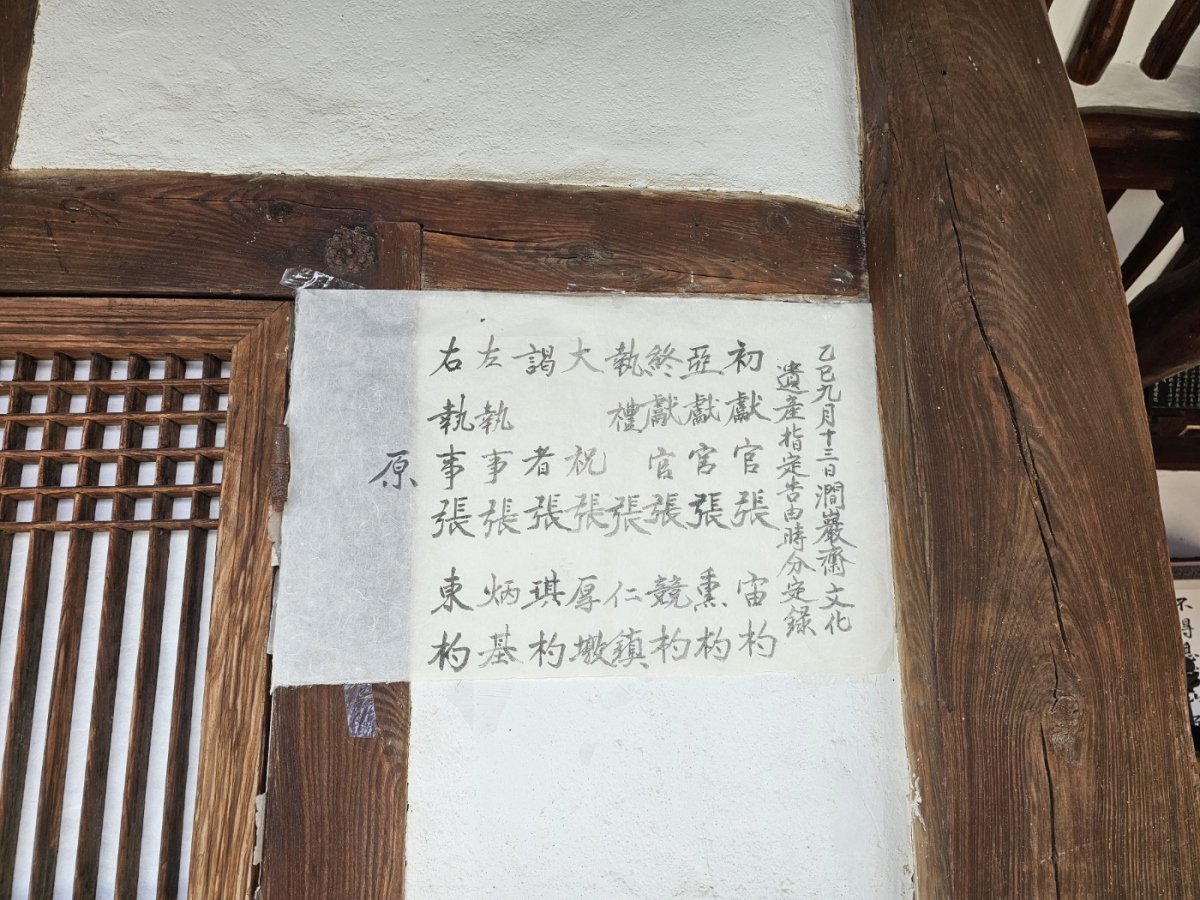 乙巳九月十三日澗巖齋文化
遺產指定告由時分定錄
初獻官張宙杓
亞獻官張熏杓
終獻官張競杓
執禮張仁鎮
大祝張厚墩
謁者張琪杓
左執事張炳基
右執事張東杓
原